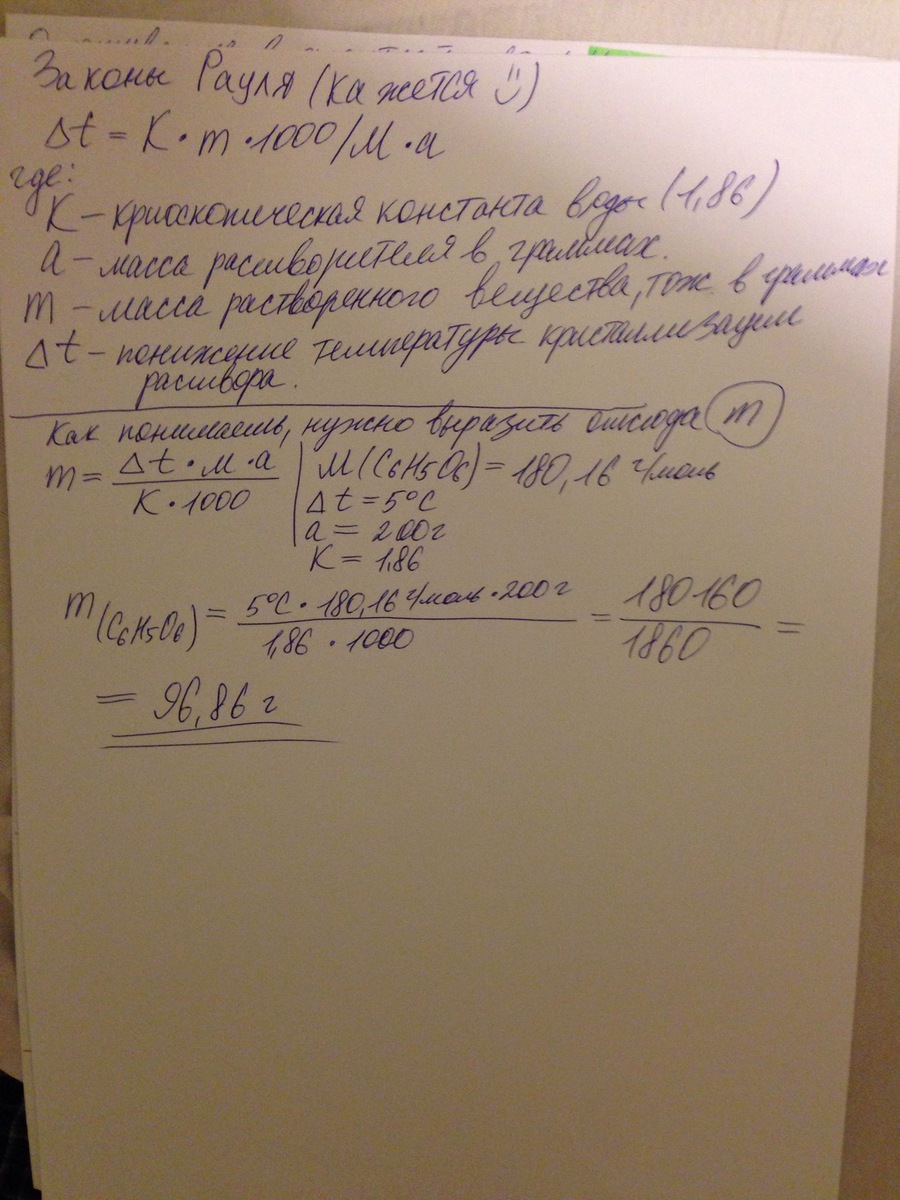 Законы Рауля (кажется :))
Δt = K·m·1000/M·a
где:
K – криоскопическая константа воды (1,86)
a – масса растворителя в граммах.
m – масса растворенного вещества, тож в граммах
Δt – понижение температуры кристаллизации
раствора.
Как понимаешь, нужно выразить отсюда m
m = Δt·M·a / K·1000
M(C6H5O6) = 180,16 г/моль
Δt = 5°C
a = 200г
K = 1,86
m(C6H5O6) = 5°C·180,16 г/моль·200г / 1,86·1000 = 180160 / 1860 =
= 96,86 г